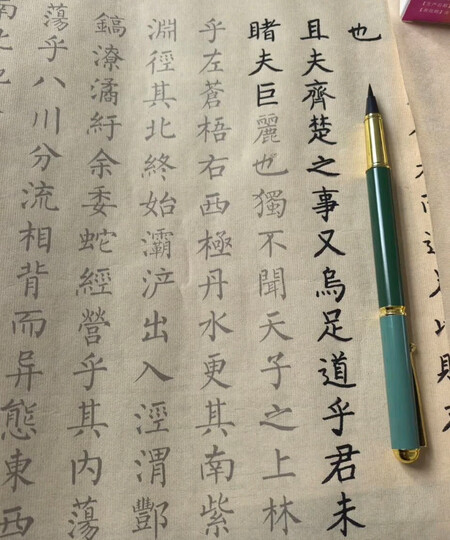 也
且夫齊楚之事又烏足道乎君未
睹夫巨麗也獨不聞天子之上林
乎左蒼梧右西極丹水更其南紫
淵徑其北終始灞浐出入涇渭酆
鎬潦潏紆余委蛇經營乎其内蕩
蕩乎八川分流相背而异態東西